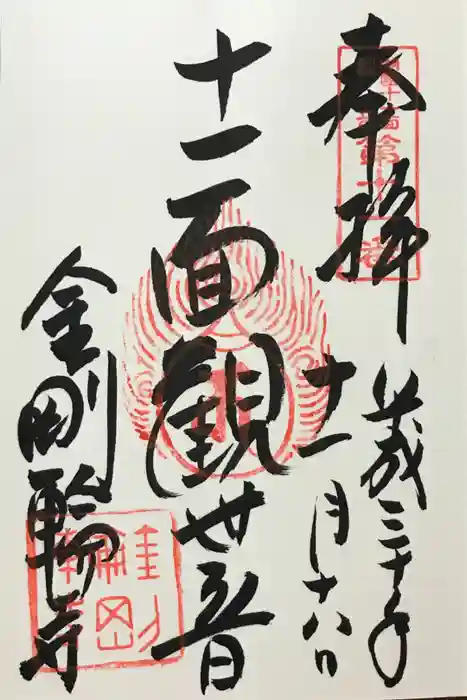 奉拝
平成三十年
十一月十八日
十一面観世音
金剛輪寺